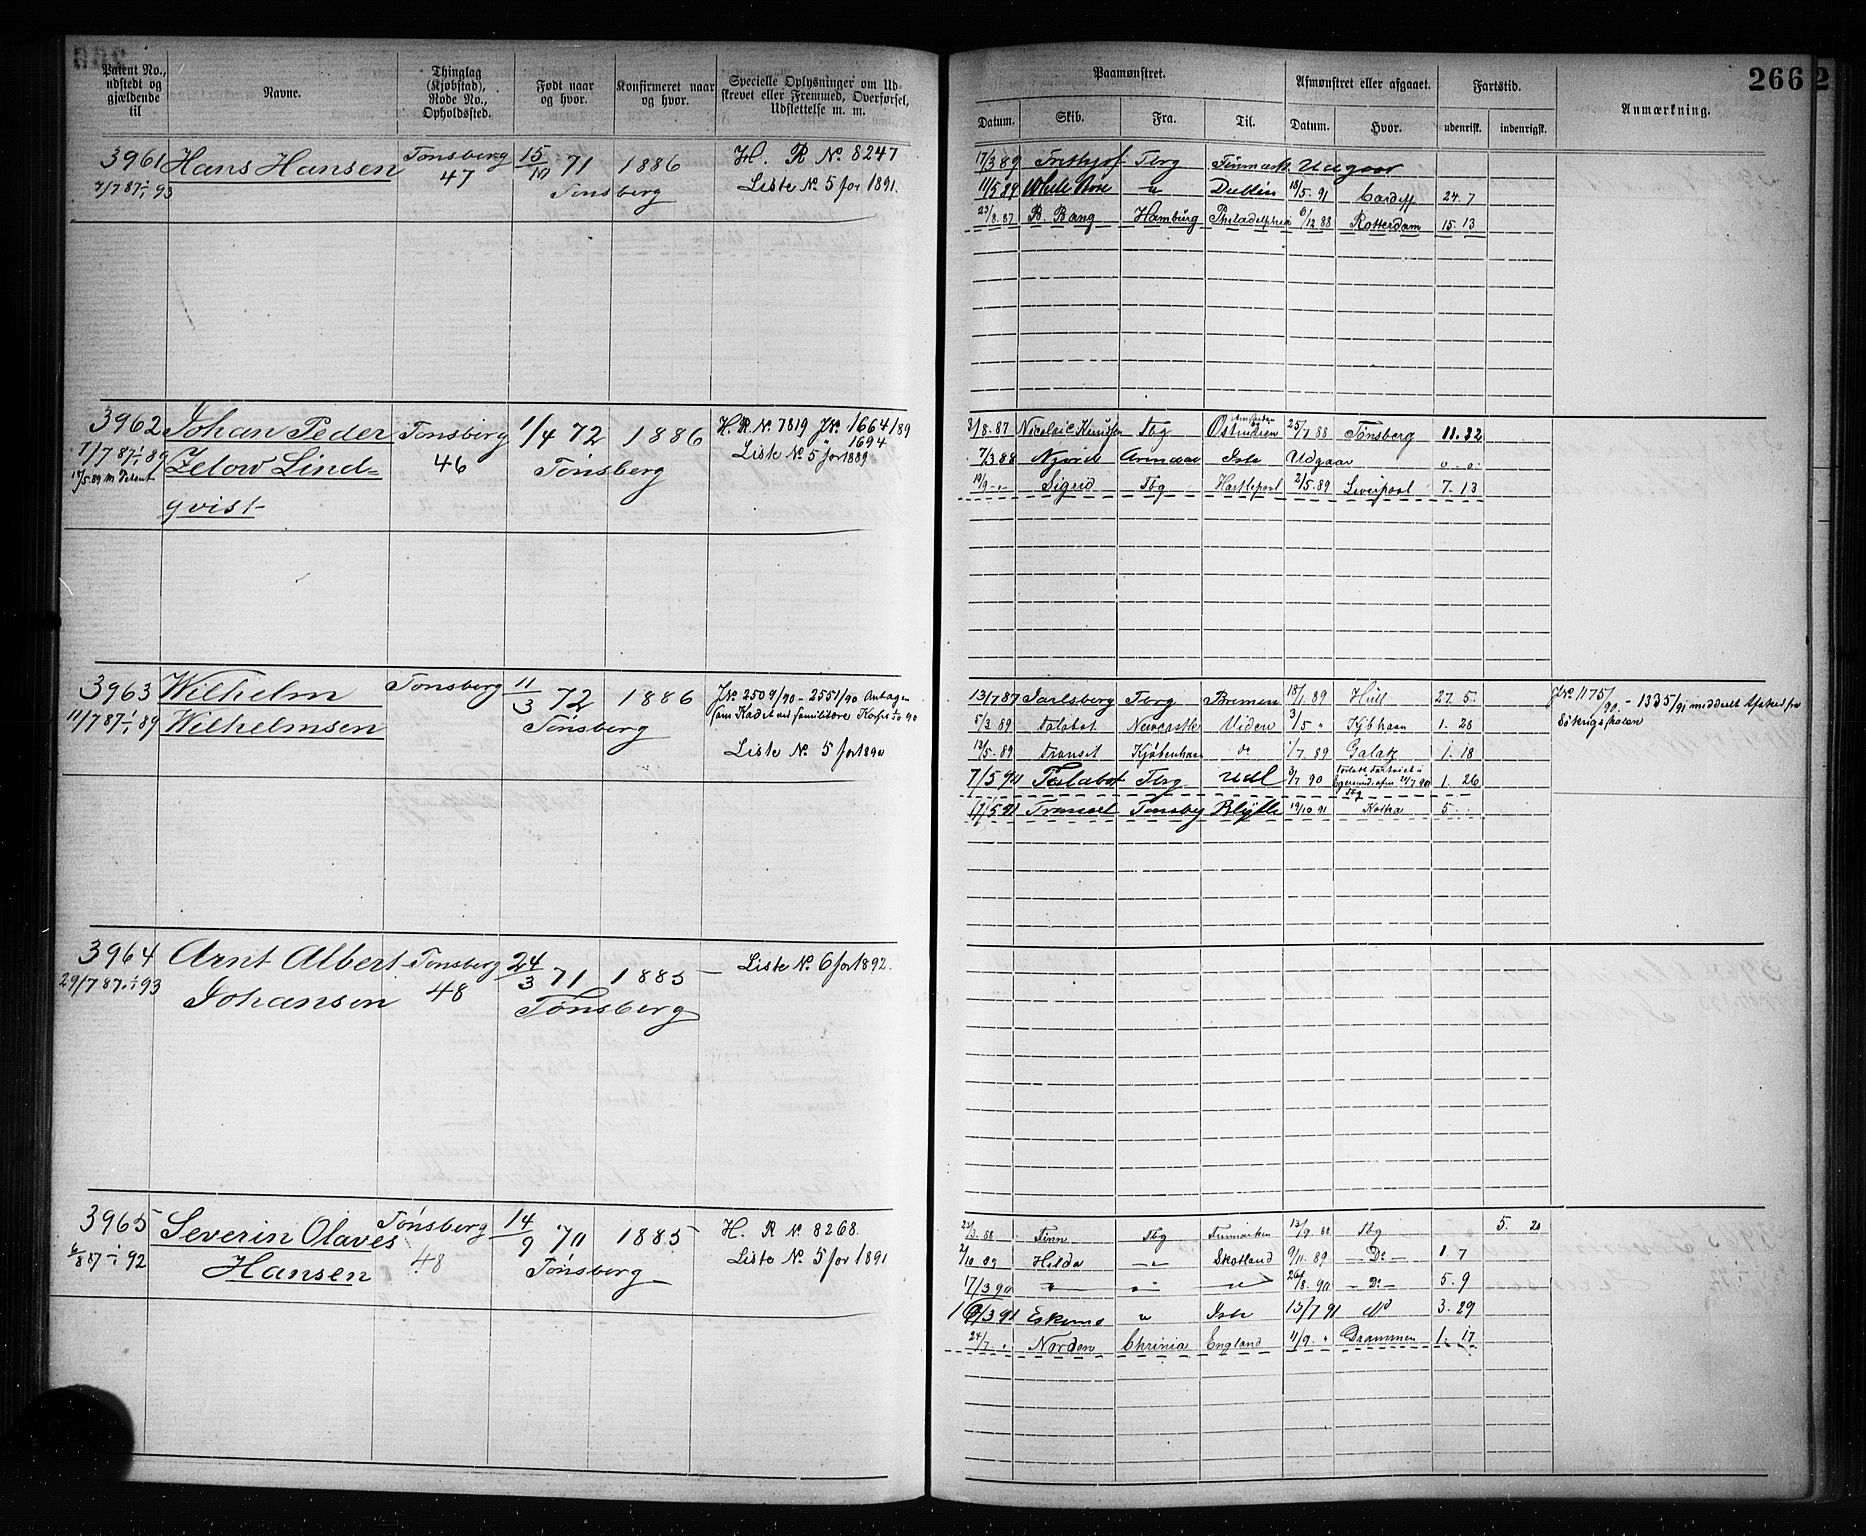 Patent No., udstedt og gjældende til
Navne.
Thinglag (Kjøbstad), Rode No., Opholdssted.
Født naar og hvor.
Konfirmeret naar og hvor.
Specielle Oplysninger om Udskrevet eller Fremmed, Overførsel, Udslettelse m. m.
Paamønstret.
Afmønstret eller afgaaet.
Fartstid.
Anmærkning.
266
Datum. Skib. Fra. Til. Datum. Hvor. udenrigsk. indenrigsk.
3961 Hans Hansen Tønsberg 15/10 71 1886 H. R No 8247
7/7 87 - 93 47 Tønsberg Liste No. 5 for 1891.
17/3 89 Frithjof Tbrg Finmark Udgaar
11/5 89 White Dublin 18/5. 91 Cardiff 24. 7
23/8. 87 B. Bang Hamburg Philadelphia 6/12. 88 Rotterdam 15. 13
3962 Johan Peder Tønsberg 1/4 72 1886 H. R. No. 7819 JNo. 1664/89
1/7 87 - 89 Zelow Lind= 46 Tønsberg 1694
17/5. 89 Liste No. 5 for 1889
qvist
3/8. 87 Nicolai Knudsen Tbg Ostindien 25/7 88 Tønsberg 11. 22
7/3 88 Ish Udgaar
Sigrid Tbg Hartlepool 2/5. 89 Liverpool 7. 13
3963 Wilhelm Tønsberg 11/3 72 1886 JNo 2509/90 - 2551/90 Antagen
11/7 87 - 89 Wilhelmsen Tønsberg som Kadet
Liste No. 5 for 1890
13/7 87 Jarlsberg Tbrg Bremen 18/1. 89 Hull 27. 5.
5/3. 89 Newcastle 3/5 " Kjbhavn 1. 28
12/5. 89 transit Kjøbenhavn do 1/7 89 Galatz 1. 18
7/5 90 Tbrg Udl 3/7. 90 1. 26
17/5 91 Transit Tønsbg Blyth 19/10 91 Kotka 5
JNo 1175/90. - 1335/91
3964 Arnt Albert Tønsberg 24/3 71 1885 Liste No. 6 for 1892.
29/7 87 - 93 Johansen 48 Tønsberg
3965 Severin Olaves Tønsberg 14/9 70 1885 H. R No. 8268.
6/8 87 - 92 Hansen 48 Tønsberg Liste No. 5 for 1891
23/3. 88 Finn Tbg Finmarken 12/9. 88 Tbg 5. 20
2/10 89 Hilda Skotland 9/11. 89 Do 1. 7
17/3 90 26/8. 90 Do 5. 9
16/3 91 Eskimo Ish 15/7 91 3. 29
24/7. Norden Chrinia England 11/9. Drammen 1. 17